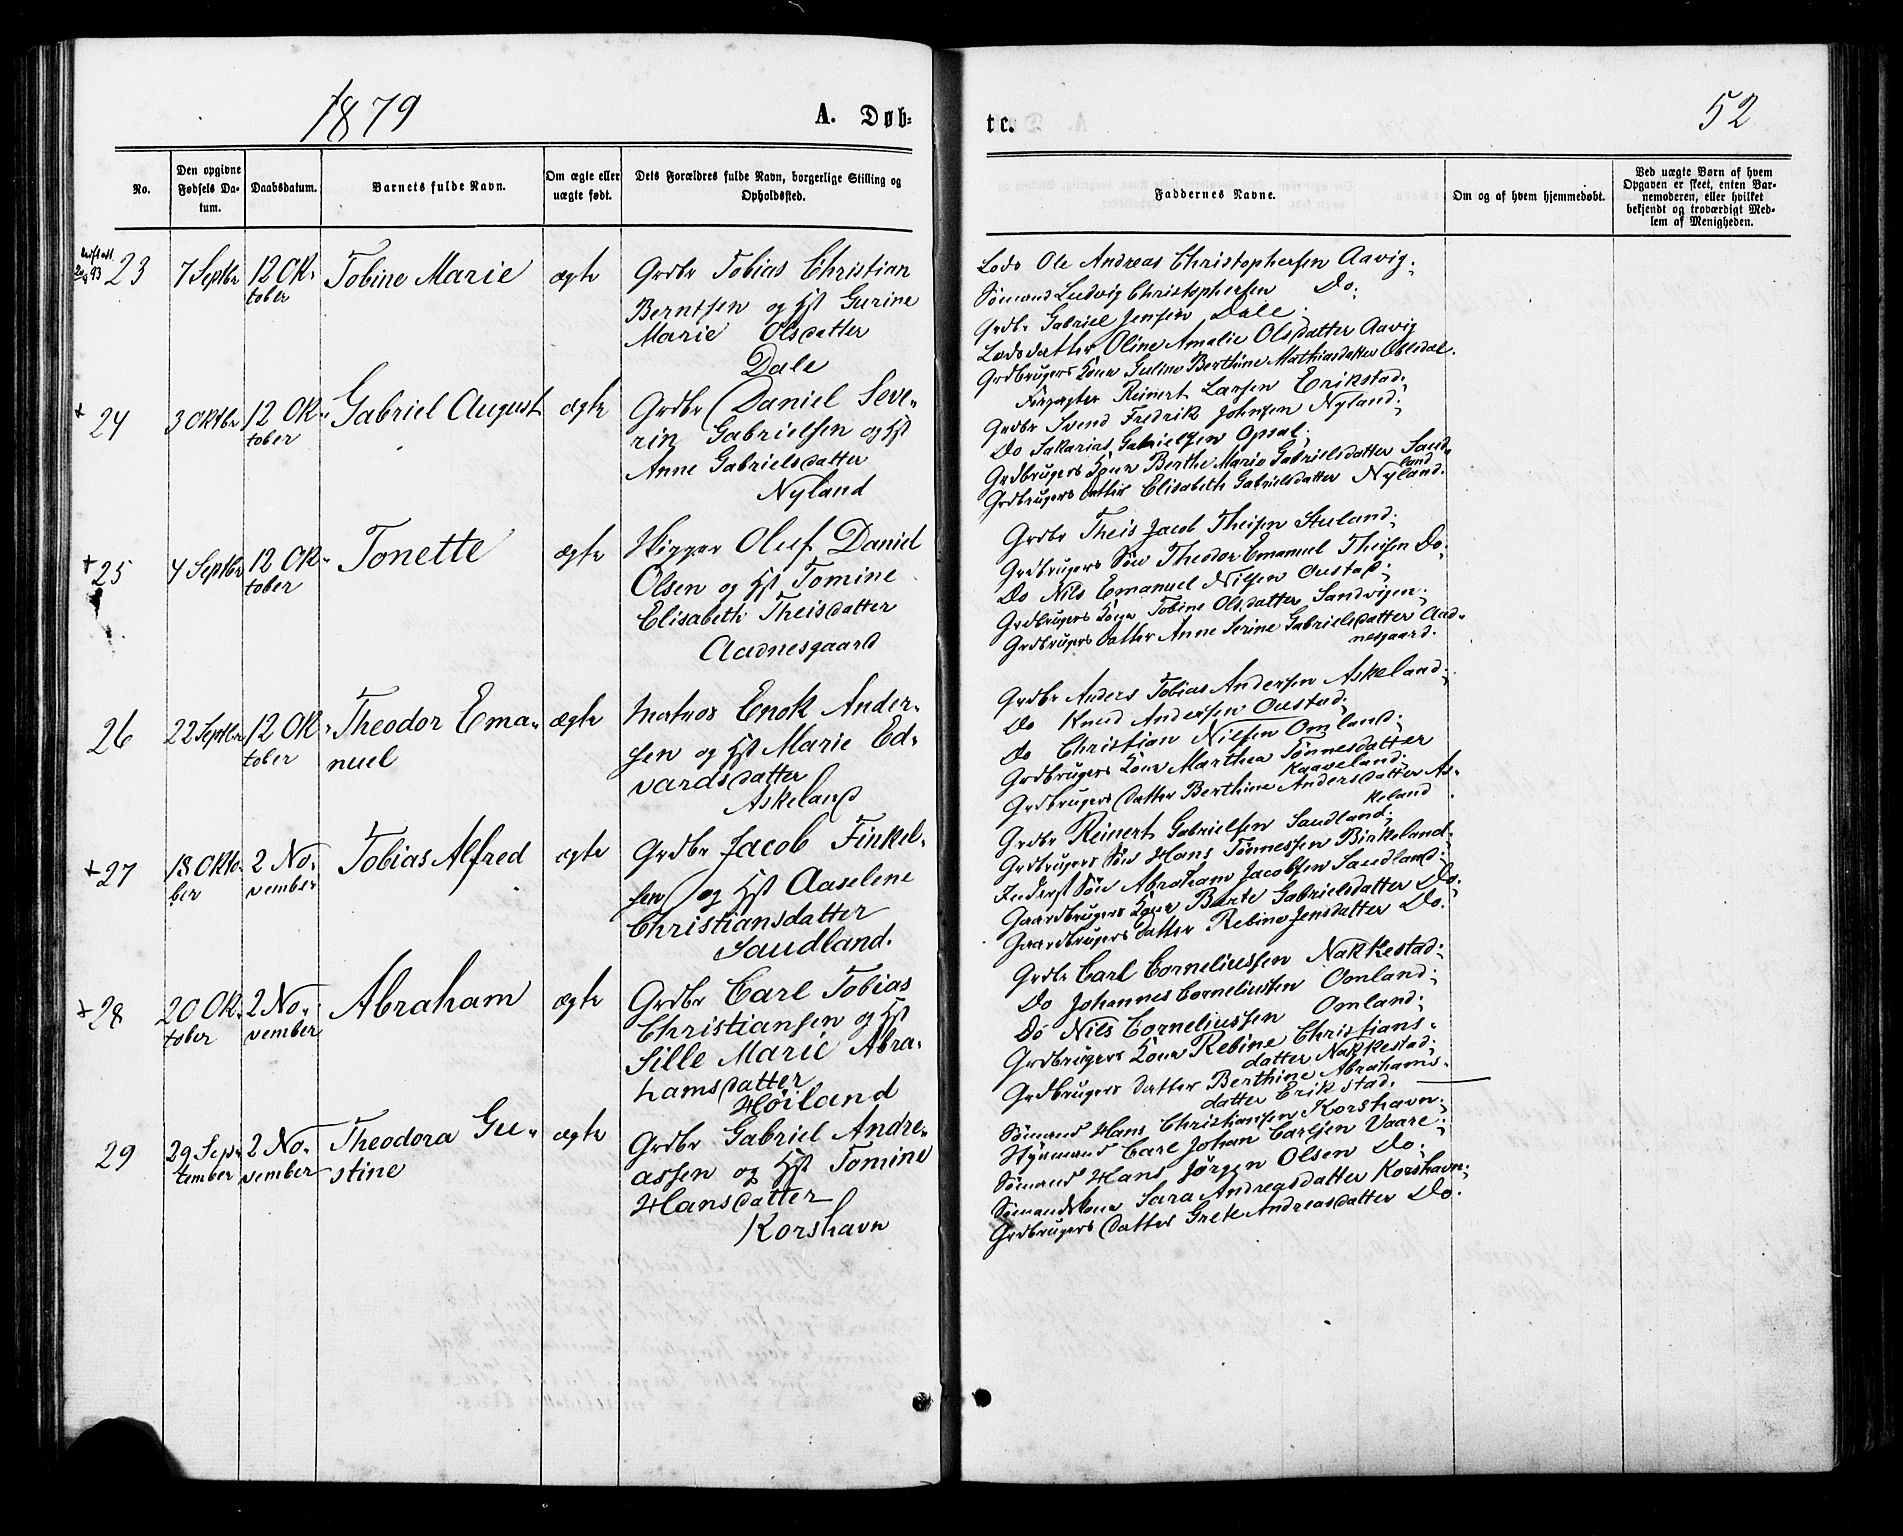 1879
A. Døb-
te.
52
No.
Den opgivne Fødsels Da-
tum.
Daabsdatum.
Barnets fulde Navn.
Om ægte eller
uægte født.
Dets Forældres fulde Navn, borgerlige Stilling og
Opholdssted.
Faddernes Navne.
Om og af hvem hjemmedøbt.
Ved uægte Børn af hvem
Opgaven er skeet, enten Bar-
nemoderen, eller hvilket
bekjendt og troværdigt Med-
lem af Menigheden.
23
7 Septbr
12 Ok-
tober
Tobine Marie
ægte
Grdbr Tobias Christian
Berntsen og Hst Gurine
Marie Olsdatter
Dale
Lods Ole Andreas Christophersen Aavig.
Sømand Ludvig Christophersen Do.
Grdbr Gabriel Jensen Dale.
Lodsdatter Oline Amalie Olsdatter Aavig
Grdbrugers Kone Guline Berthine Mathiasdatter
+ 24
3 Oktbr
12 Ok-
tober
Gabriel August
ægte
Grdbr Daniel Seve-
rin Gabrielsen og Hst
Anne Gabrielsdatter
Nyland
Forpagter Reinert Larsen Erikstad.
Grdbr Svend Fredrik Johnsen Nyland.
Do Sakarias Gabrielsen Opsal.
Grdbrugers Kone Berthe Marie Gabrielsdatter Saud-
land.
Grdbrugers Datter Elisabeth Gabrielsdatter Nyland.
+ 25
4 Septbr
12 Ok-
tober
Tonette
ægte
Skipper Oluf Daniel
Olsen og Hst Tomine
Elisabeth Theisdatter
Aadnesgaard
Grdbr Theis Jacob Theisen Stuland.
Grdbrugers Søn Theodor Emanuel Theisen Do.
Do Nils Emanuel Nilsen Oustad.
Grdbrugers Kone Tobine Olsdatter Sandvigen.
Grdbrugers Datter Anne Serine Gabrielsdatter Aad-
nesgaard.
26
22 Septbr
12 Ok-
tober
Theodor Ema-
nuel
ægte
Matros Enok Ander-
sen og Hst Marie Ed-
vardsdatter
Askeland
Grdbr Anders Tobias Andersen Askeland.
Do Knud Andersen Oustad.
Do Christian Nilsen Omland.
Grdbrugers Kone Marthea Tønnesdatter
Kaaveland.
Grdbrugers Datter Berthine Andersdatter As-
keland.
+ 27
18 Okto-
ber
2 No-
vember
Tobias Alfred
ægte
Grdbr Jacob Finkel-
sen og Hst Aaselene
Christiansdatter
Saudland.
Grdbr Reinert Gabrielsen Saudland.
Grdbrugers Søn Hans Tønnessen Birkeland.
Inderst Søn Abraham Jacobsen Saudland.
Gaardbrugers Kone Berte Gabrielsdatter Do.
Gaardbrugers Datter Rebine Jensdatter Do.
+ 28
20 Ok-
tober
2 No-
vember
Abraham
ægte
Grdbr Carl Tobias
Christiansen og Hst
Sille Marie Abra-
hamsdatter
Høiland
Grdbr Carl Corneliussen Nakkestad.
Do Johannes Corneliussen Omland.
Do Nils Corneliussen Omland.
Grdbrugers Kone Rebine Christians-
datter Nakkestad.
Grdbrugers Datter Berthine Abrahams-
datter Erikstad.
29
29 Sep-
tember
2 No-
vember
Theodora Gu-
stine
ægte
Grdbr Gabriel Andre-
assen og Hst Tomine
Hansdatter
Korshavn
Sømand Hans Christiansen Korshavn.
Styrmand Carl Johan Carlsen Vaare.
Sømand Hans Jørgen Olsen Do.
Sømandskone Sara Andreasdatter Korshavn.
Grdbrugers Datter Grete Andreasdatter Do.